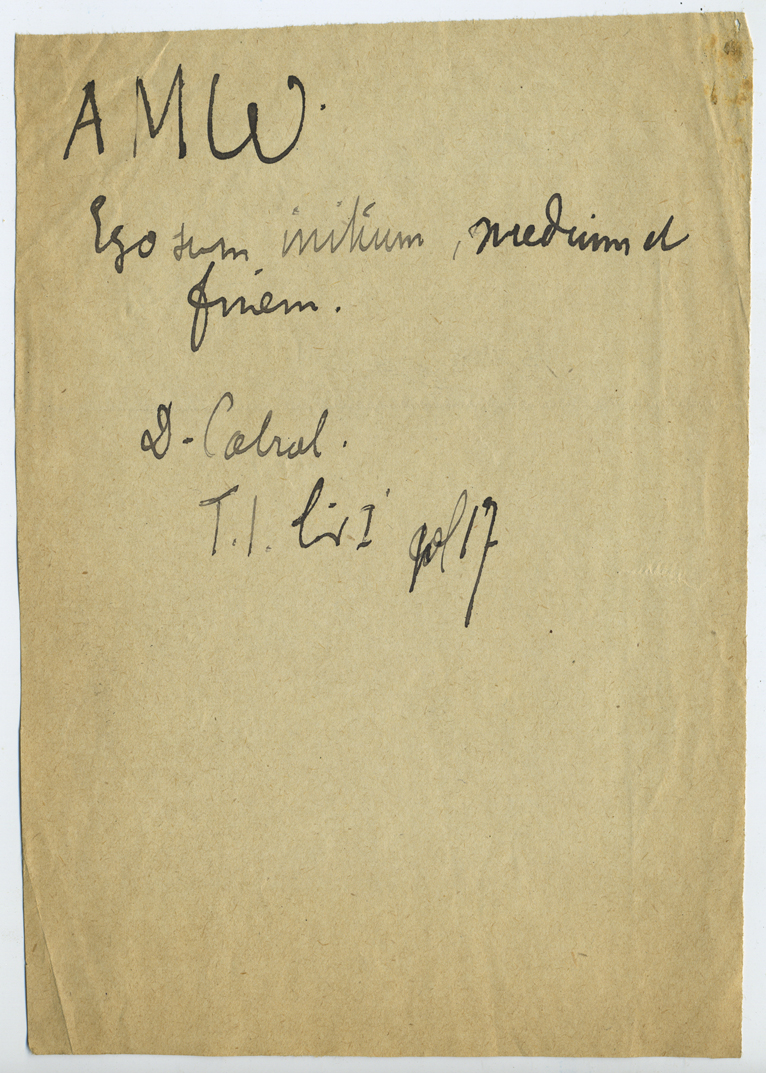 A M W.
Ego sum initium, medium et
finem.
D. Cabral.
T. I. Liv I fol 17